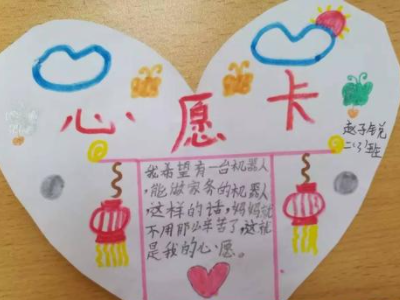 心愿卡
赵子锐
二、3班
我希望有一台机器人
,能做家务的机器人
,这样的话,妈妈就
不用那么辛苦了,这就
是我的心愿。